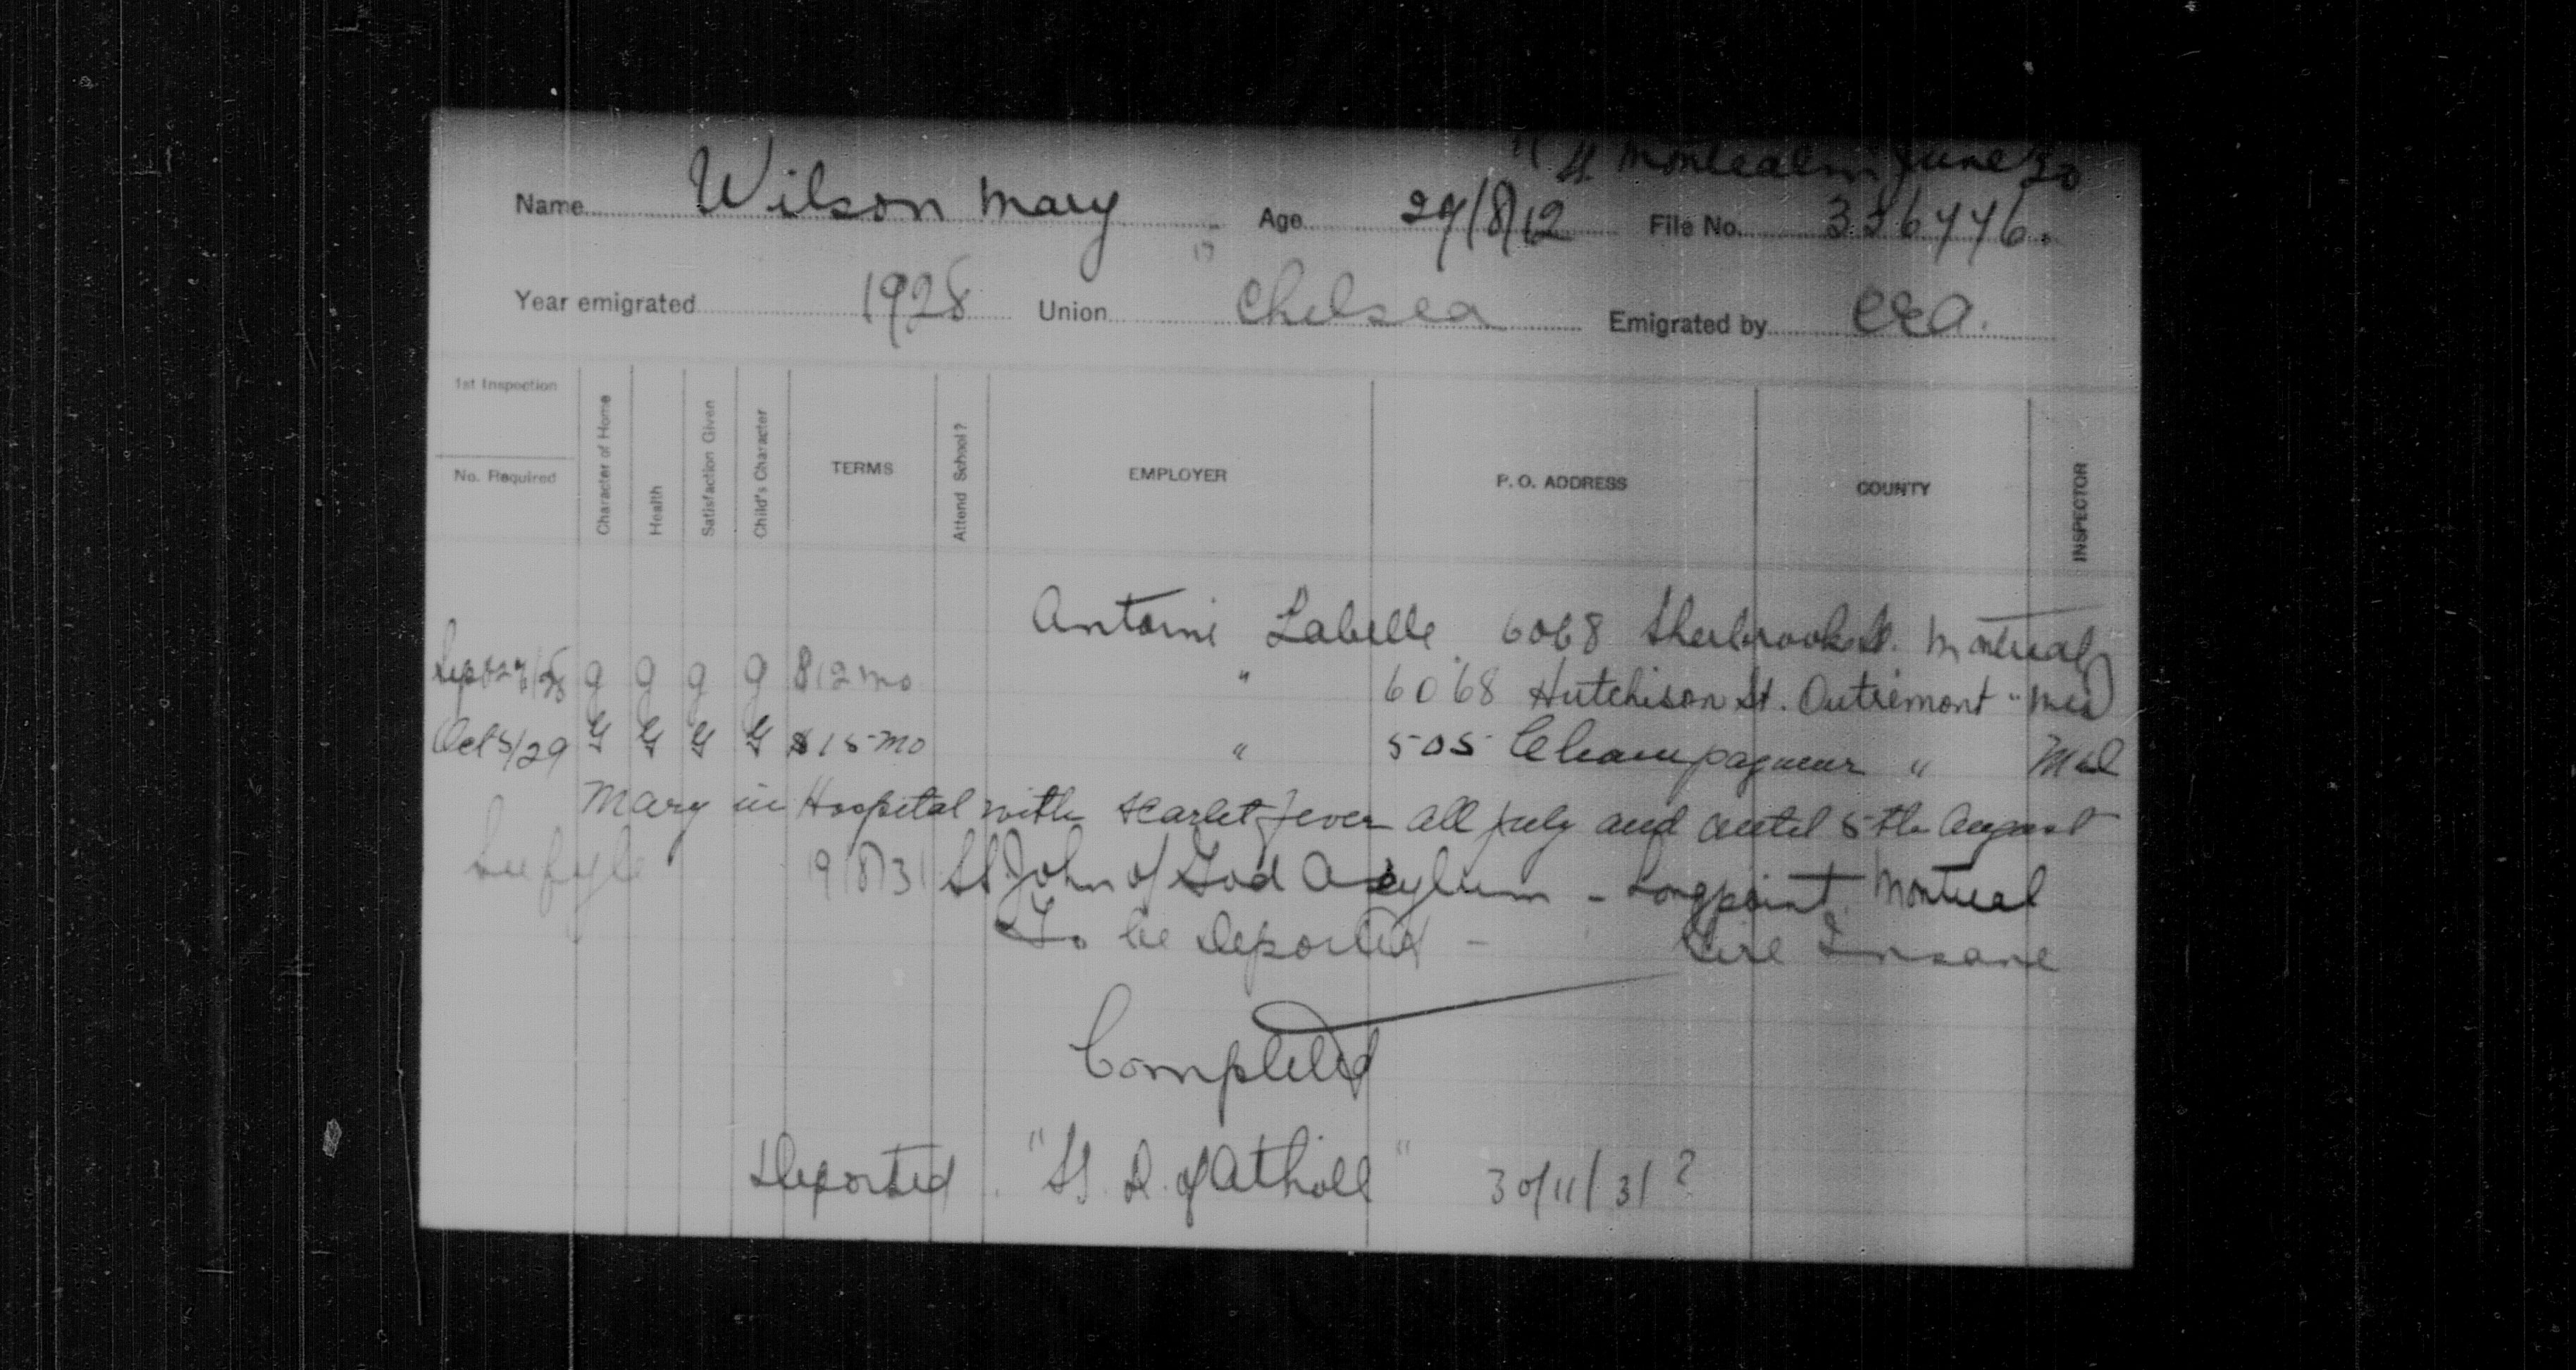 SS Montcalm June 30
Name Wilson Mary Age 29/8/12 File No. 336446.
Year emigrated 1928 Union Chelsea Emigrated by CEA.
1st Inspection
No. Required
Character of Home
Health
Satisfaction Given
Child's Character
TERMS
Attend School?
EMPLOYER
P. O. ADDRESS
COUNTY
INSPECTOR
Antoine Labelle. 6068 Sherbrooke St. Montreal
Sept 27/28 g g g g $12 mo " 6068 Hutchison St. Outremont "
Oct 5/29 G G G G $15 mo " 505 Champagneur "
Mary in Hospital with Scarlet fever all July and until 5th August
See fyle 19/8/31 St John of God Asylum - Longpoint, Montreal
To be Deported - Insane
Completed
Deported "SS. D. of Atholl" 30/11/31 ?